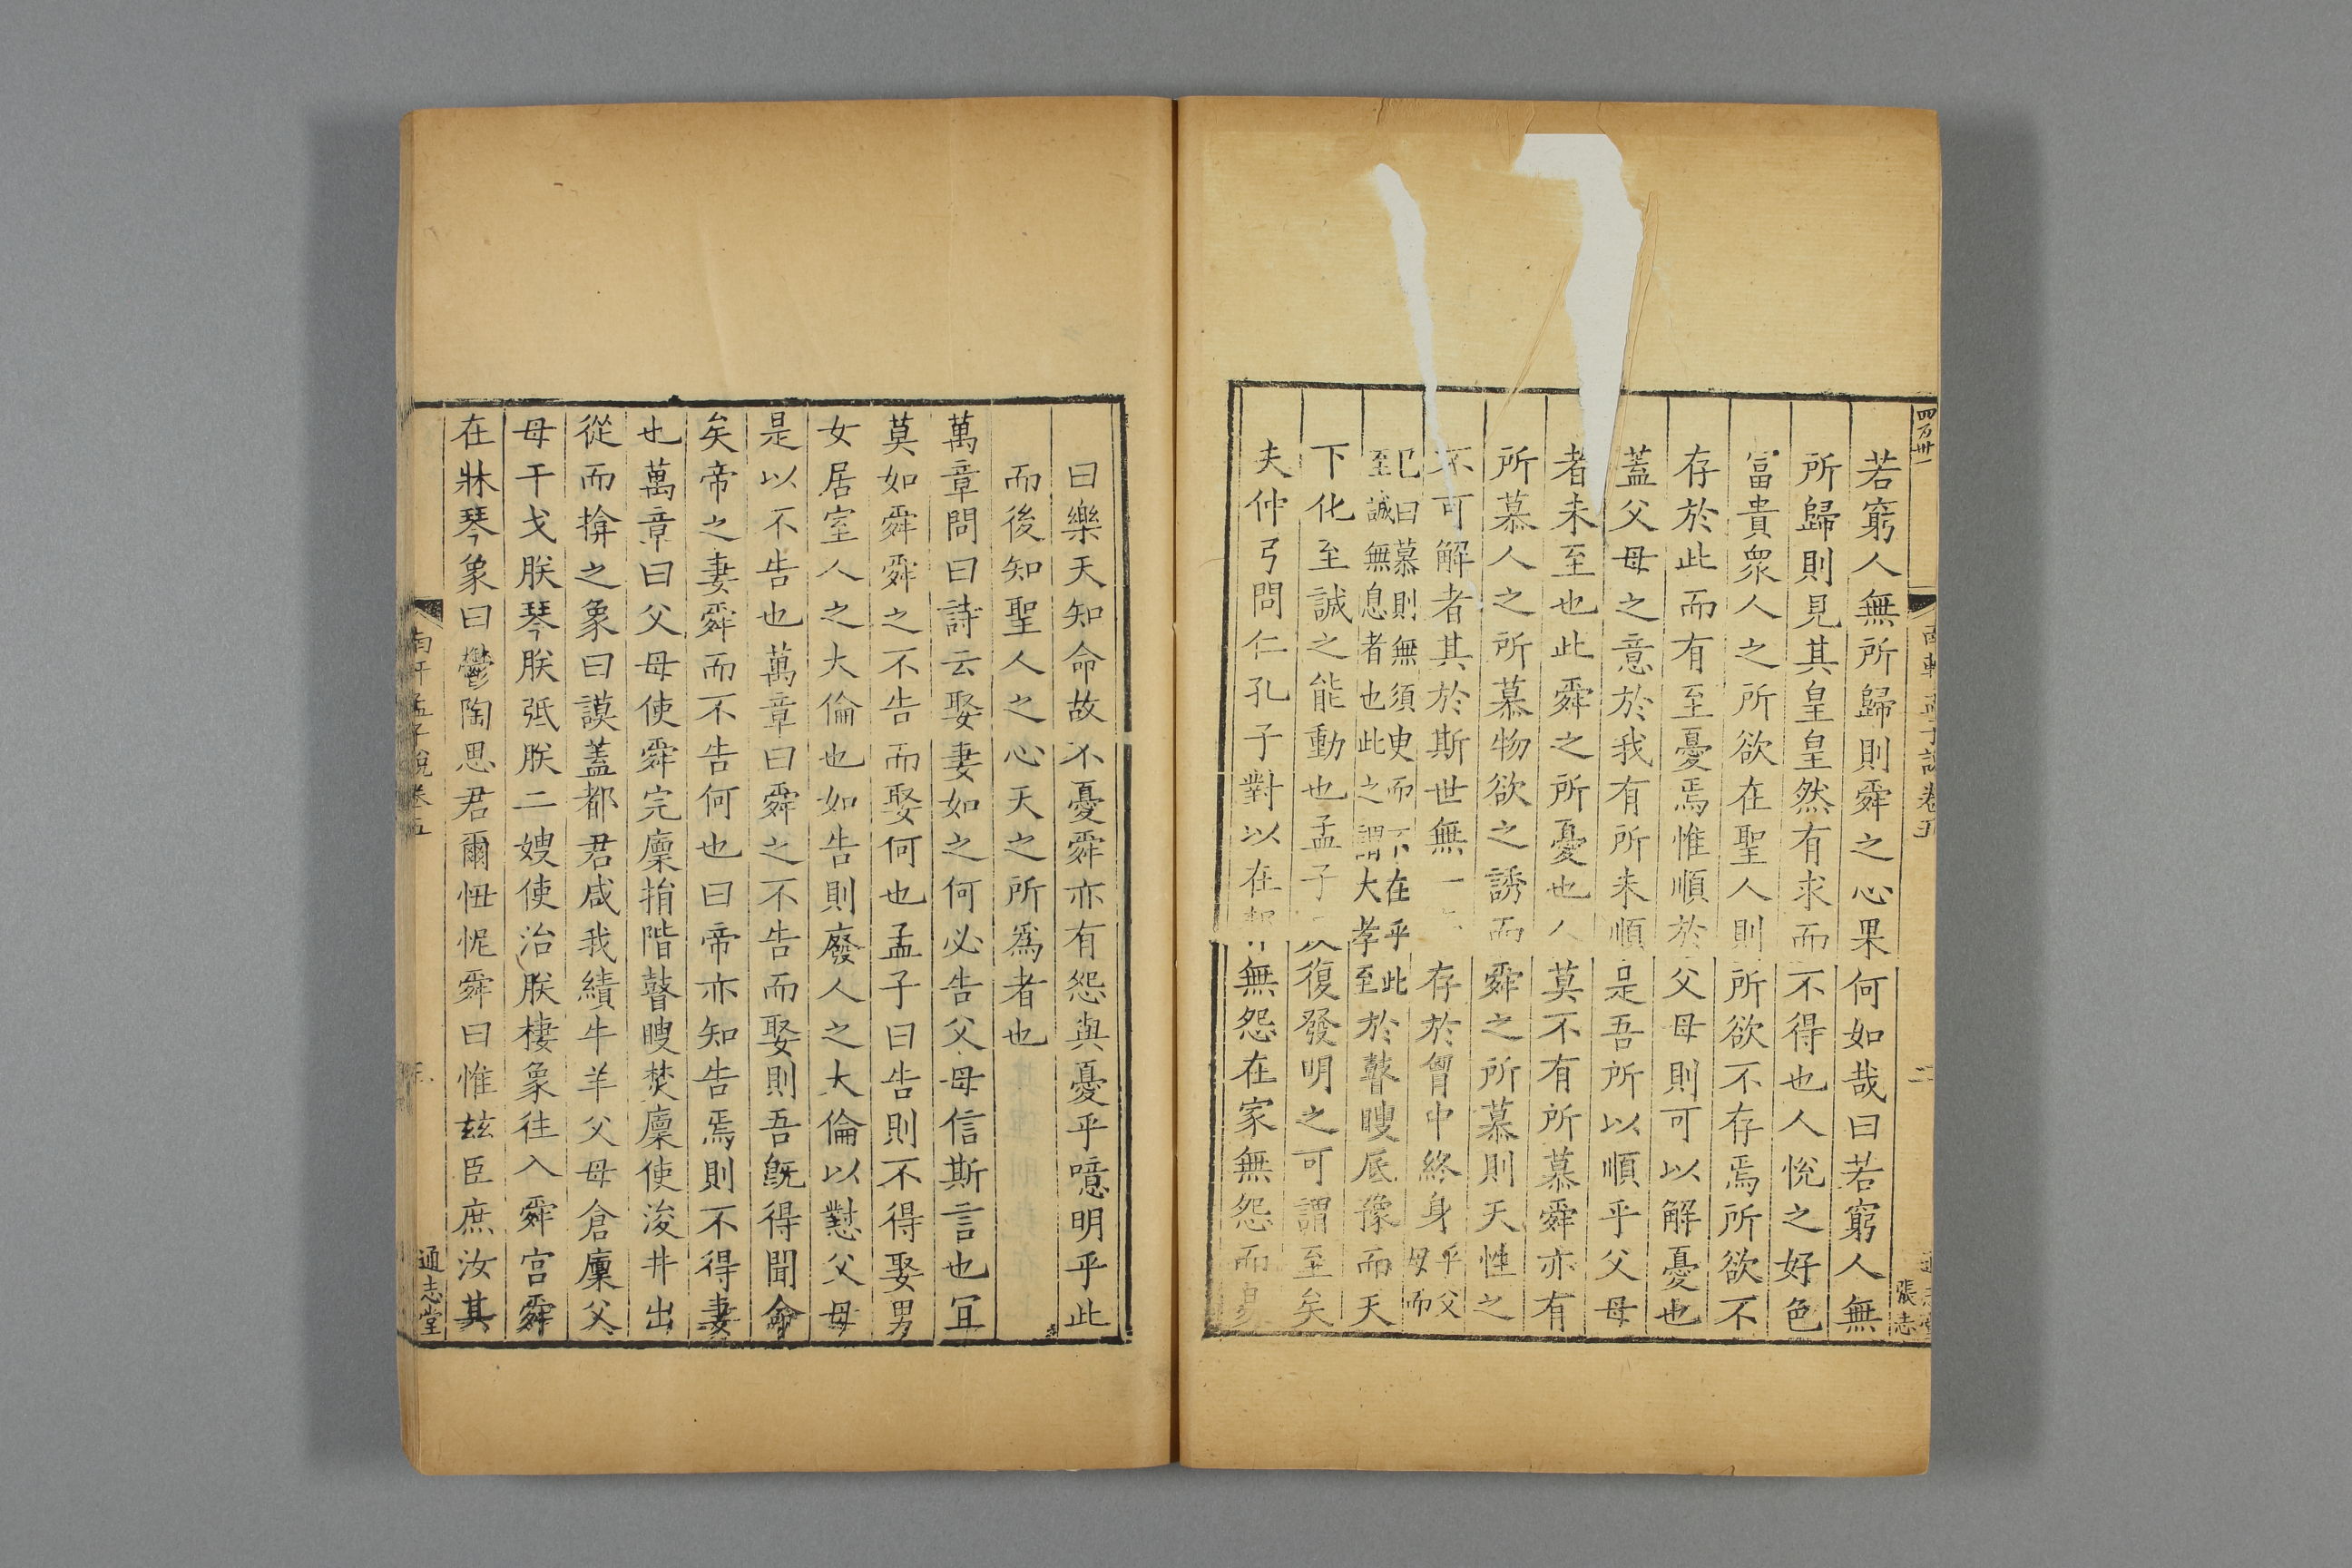 四万卅一
若窮人無所歸則舜之心果何如哉曰若窮人無
所歸則見其皇皇然有求而不得也人悅之好色
富貴衆人之所欲在聖人則所欲不存焉所欲不
存於此而有至憂焉惟順於父母則可以解憂也
蓋父母之意於我有所未順是吾所以順乎父母
者未至也此舜之所憂也人莫不有所慕舜亦有
所慕人之所慕物欲之誘而舜之所慕則天性之
不可解者其於斯世無一存於曾中終身乎父
母而
己曰慕則無須臾而不在乎此
至誠無息者也此之謂大孝至於瞽瞍厎豫而天
下化至誠之能動也孟子又復發明之可謂至矣
夫仲弓問仁孔子對以在邦無怨在家無怨而易
南軒孟子說卷五
二
通志堂
張志
曰樂天知命故不憂舜亦有怨與憂乎噫明乎此
而後知聖人之心天之所爲者也
萬章問曰詩云娶妻如之何必告父母信斯言也冝
莫如舜舜之不告而娶何也孟子曰告則不得娶男
女居室人之大倫也如告則廢人之大倫以懟父母
是以不告也萬章曰舜之不告而娶則吾旣得聞命
矣帝之妻舜而不告何也曰帝亦知告焉則不得妻
也萬章曰父母使舜完廩捐階瞽瞍焚廩使浚井出
從而揜之象曰謨蓋都君咸我績牛羊父母倉廩父
母干戈朕琴朕弤朕二嫂使治朕棲象往入舜宫舜
在牀琴象曰鬱陶思君爾忸怩舜曰惟玆臣庶汝其
南軒孟子說卷五
通志堂